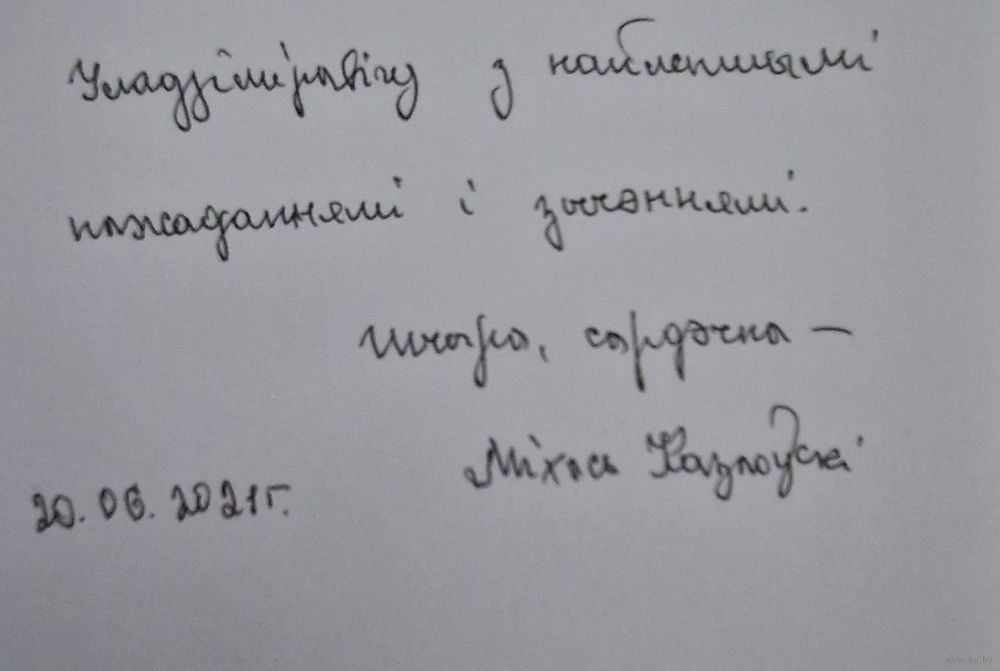 Уладзіміравічу з найлепшымі
пажаданнямі і зычэннямі.
Шчыра, сардэчна —
Міхась Казлоўскі
20.06.2021г.
www.ay.by